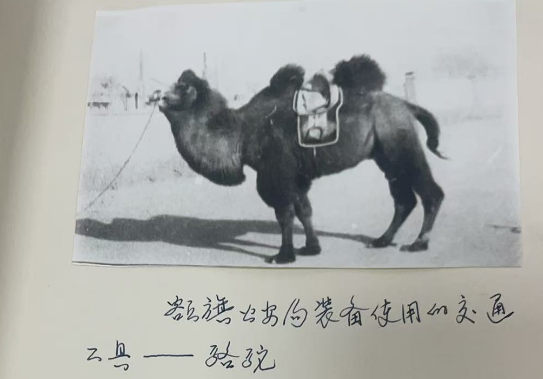 额旗公安局装备使用的交通
工具——骆驼